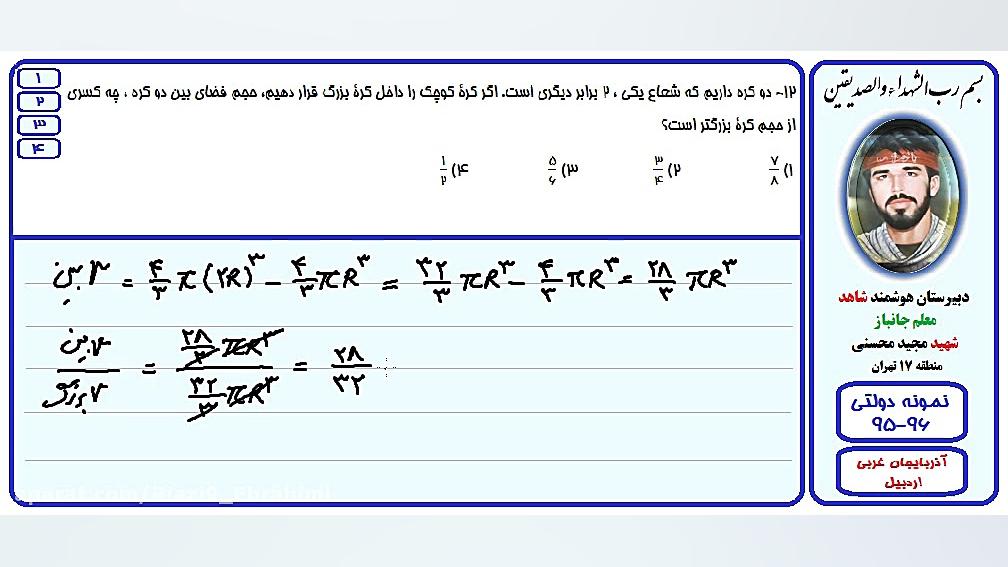 ۱۲- دو کره داریم که شعاع یکی ، ۲ برابر دیگری است. اگر کرهٔ کوچک را داخل کرهٔ بزرگ قرار دهیم، حجم فضای بین دو کره ، چه کسری
از حجم کرهٔ بزرگتر است؟
۱) ۷/۸ ۲) ۳/۴ ۳) ۵/۶ ۴) ۱/۲
۱
۲
۳
۴
بین V = ۴/۳ π(۲R)^۳ - ۴/۳ πR^۳ = ۳۲/۳ πR^۳ - ۴/۳ πR^۳ = ۲۸/۳ πR^۳
بین V / بزرگ V = (۲۸/۳ πR^۳) / (۳۲/۳ πR^۳) = ۲۸/۳۲
بسم رب الشهداء والصدیقین
دبیرستان هوشمند شاهد
معلم جانباز
شهید مجید محسنی
منطقه ۱۷ تهران
نمونه دولتی
۹۵-۹۶
آذربایجان غربی
اردبیل